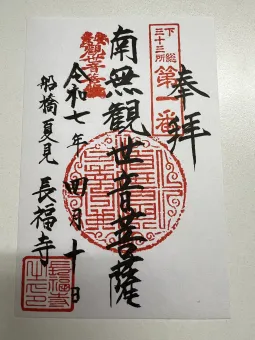 奉拝
下総三十三所
第一番
南無観世音菩薩
令和七年四月十日
船橋夏見
長福寺